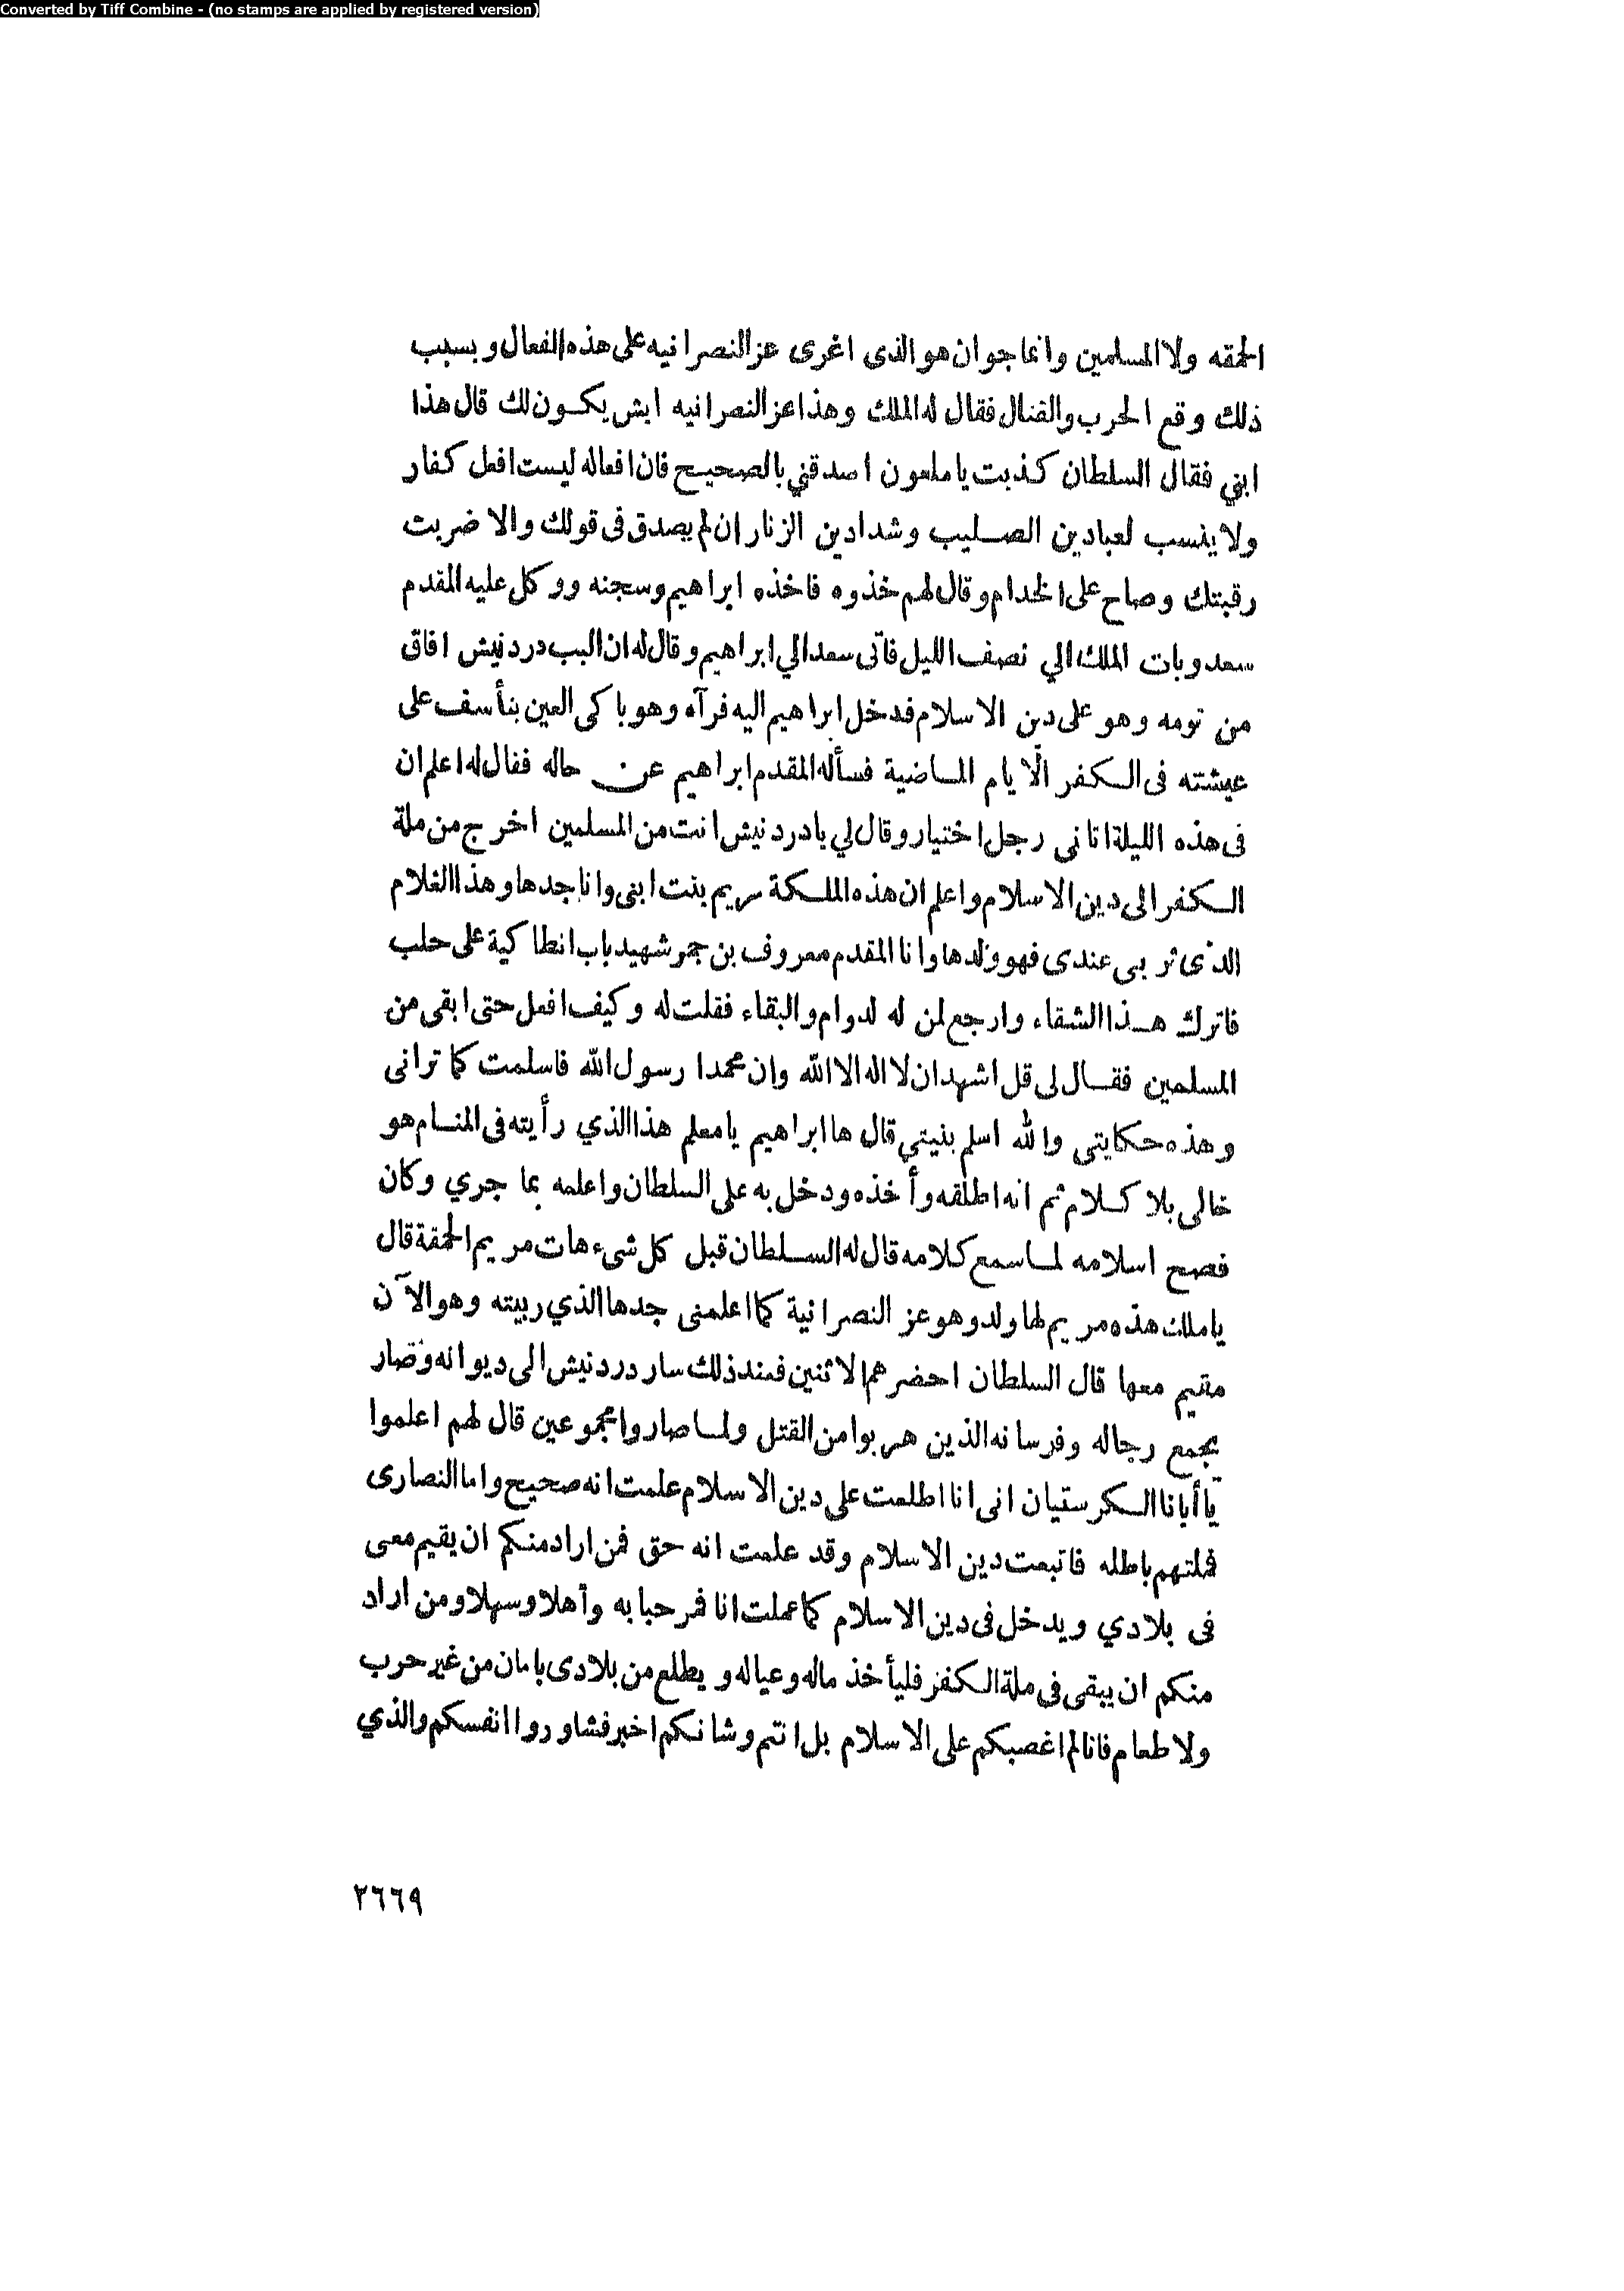 Converted by Tiff Combine - (no stamps are applied by registered version)
الحمقه ولا المسلمين وانما جوان هو الذى اغرى عز النصرانيه على هذه الفعال وبسبب
ذلك وقع الحرب والقتال فقال له الملك وهذا عز النصرانيه ايش يكون لك قال هذا
ابني فقال السلطان كذبت يا ملعون اصدقني بالصحيح فان افعاله ليست افعل كفار
ولا ينسب لعبادين الصليب وشدادين الزنار ان لم يصدق فى قولك والا ضربت
رقبتك وصاح على الخدام وقال لهم خذوه فاخذه ابراهيم وسجنه ووكل عليه المقدم
سعد وبات الملك الي نصف الليل فاتى سعد الي ابراهيم وقال له ان البب دردنيش افاق
من نومه وهو على دين الاسلام فدخل ابراهيم اليه فرآه وهو باكى العين يتأسف على
عيشته فى الكفر الايام الماضية فسأله المقدم ابراهيم عن حاله فقال له اعلم ان
فى هذه الليلة اتانى رجل اختيار وقال لي يا دردنيش انت من المسلمين اخرج من ملة
الكفر الى دين الاسلام واعلم ان هذه الملكة مريم بنت ابنى وانا جدها وهذا الغلام
الذى تربى عندى فهو ولدها وانا المقدم معروف بن جمر شهيد باب انطاكية على حلب
فاترك هذا الشقاء وارجع لمن له لدوام والبقاء فقلت له وكيف افعل حتى ابقى من
المسلمين فقال لى قل اشهد ان لا اله الا الله وان محمدا رسول الله فاسلمت كما ترانى
وهذه حكايتى والله اسلم بنيتي قال ها ابراهيم يا معلم هذا الذي رأيته فى المنام هو
خالى بلا كلام ثم انه اطلقه وأخذه ودخل به على السلطان واعلمه بما جري وكان
فصح اسلامه لما سمع كلامه قال له السلطان قبل كل شىء هات مريم الحمقة قال
يا ملك هذه مريم لها ولد وهو عز النصرانية كما اعلمنى جدها الذي ربيته وهو الآن
مقيم معها قال السلطان احضرهم الاثنين فعند ذلك سار دردنيش الى ديوانه وصار
يجمع رجاله وفرسانه الذين هربوا من القتل ولما صاروا مجموعين قال لهم اعلموا
يا أبانا الكرستيان انى انا اطلعت على دين الاسلام علمت انه صحيح واما النصارى
فملتهم باطله فاتبعت دين الاسلام وقد علمت انه حق فمن اراد منكم ان يقيم معى
فى بلادي ويدخل فى دين الاسلام كما عملت انا فمرحبا به وأهلا وسهلا ومن اراد
منكم ان يبقى فى ملة الكفر فليأخذ ماله وعياله ويطلع من بلادى بامان من غير حرب
ولا طعام فانا لم اغصبكم على الاسلام بل انتم وشانكم اخبر فشاوروا انفسكم والذي
٢٦٦٩